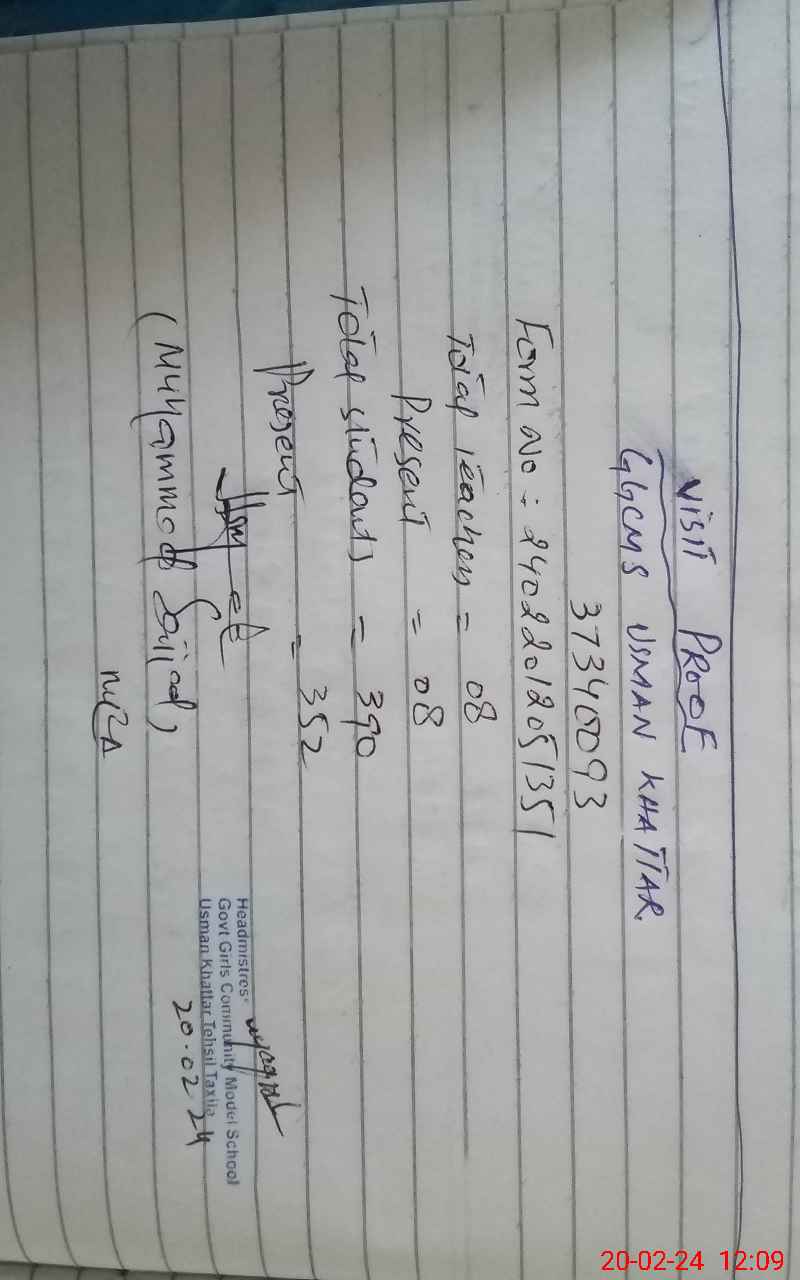 VISIT PROOF
GGCMS USMAN KHATTAR.
37340093
Form No : 24022012051351
Total Teachers = 08
Present = 08
Total students = 390
Present = 352
(Muhammad Sajjad)
Headmistres
Govt Girls Community Model School
Usman Khattar Tehsil Taxila
20.02.24
20-02-24 12:09